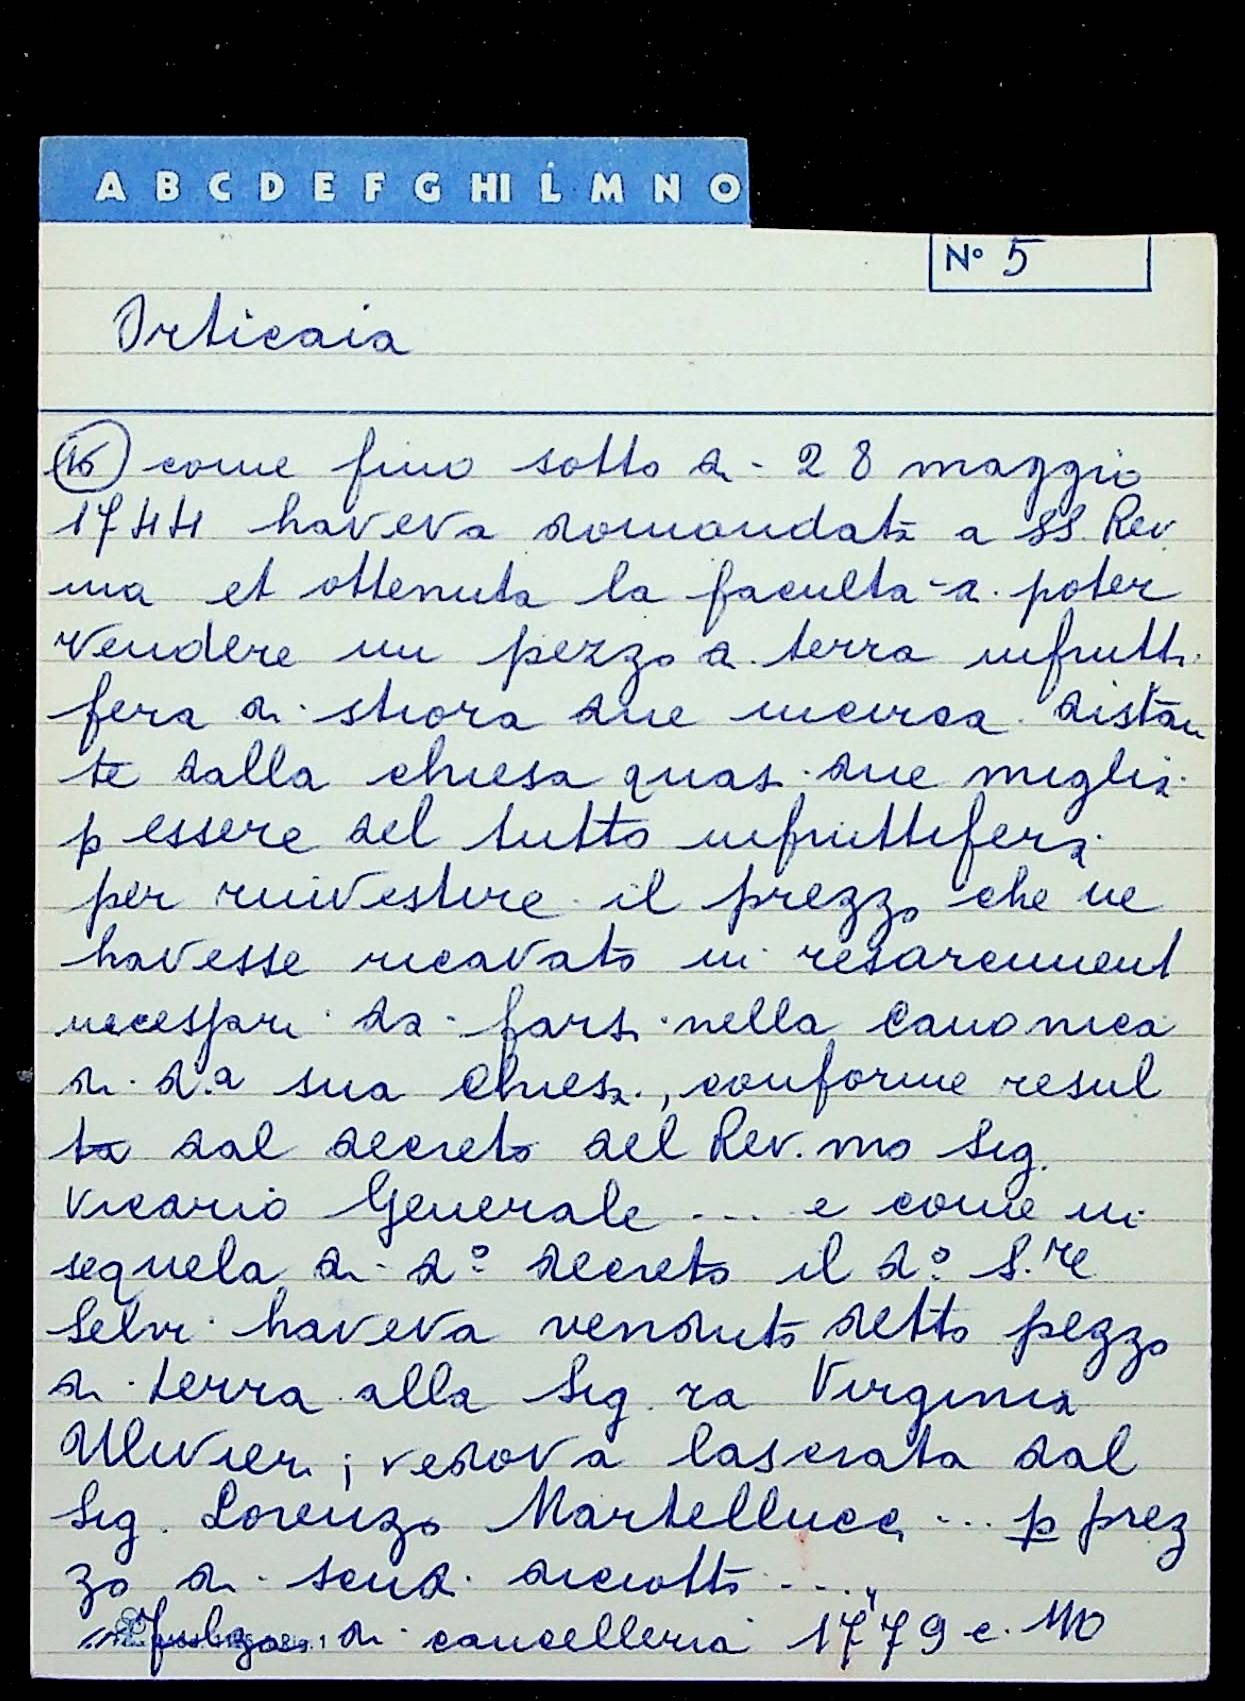 A B C D E F G HI L M N O
N° 5
Orticaia
16 come fino sotto di 28 maggio
1744 haveva domandata a SS. Rev
ma et ottenuta la faculta di poter
vendere un pezzo di terra infrutti
fera di stiora due incirca distan
te dalla chiesa quasi due miglia
p essere del tutto infruttifera
per rinvestire il prezzo che ne
havesse ricavato in resarciment
necessari da farsi nella Canonica
di d.a sua Chiesa, conforme resul
ta dal decreto del Rev.mo Sig.
Vicario Generale ... e come in
sequela di d° decreto il d° S.re
Selvi haveva venduto detto pezzo
di terra alla Sig.ra Virginia
Ulivieri; vedova lasciata dal
Sig. Lorenzo Martellucci ... p prez
zo di scudi diciotto ....,,
in Filza di cancelleria 1779 c. 110